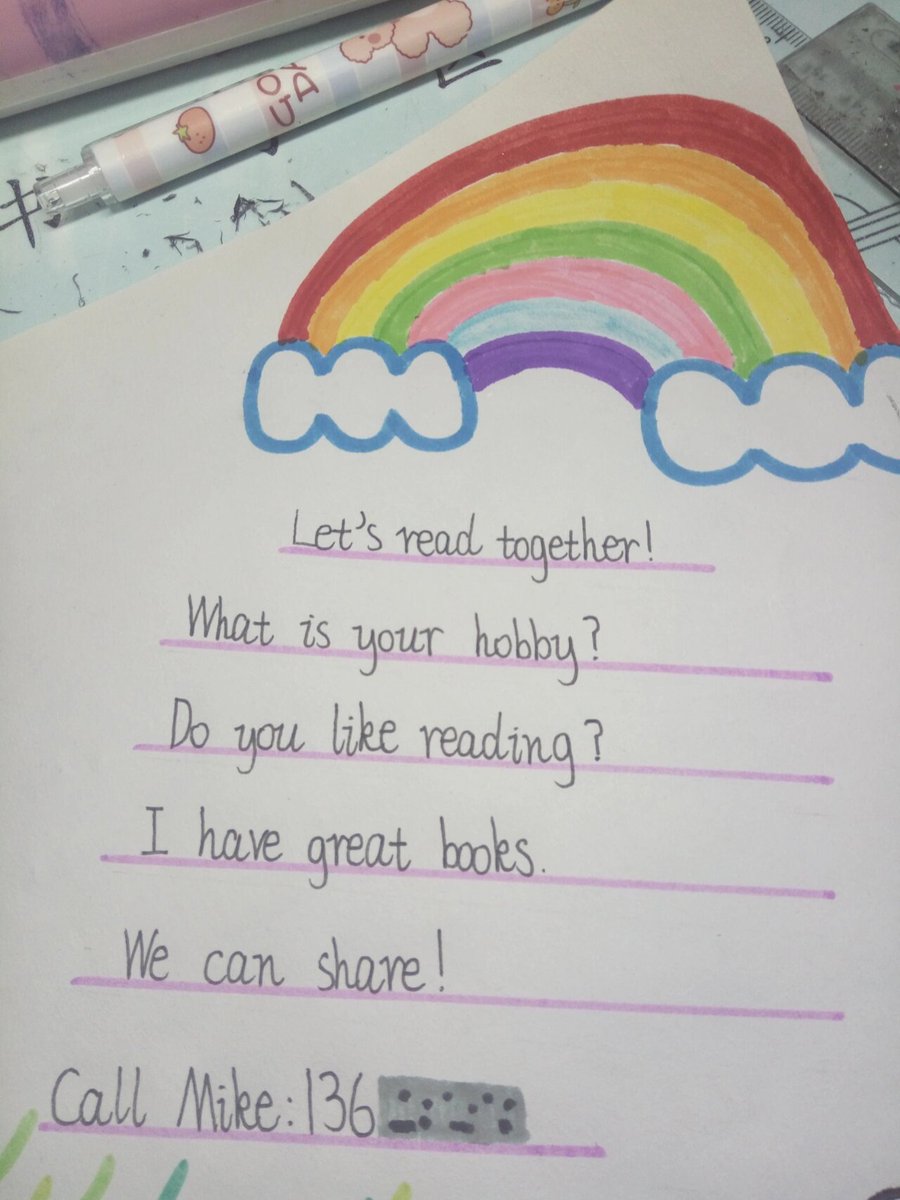 Let's read together!
What is your hobby?
Do you like reading?
I have great books.
We can share!
Call Mike: 136